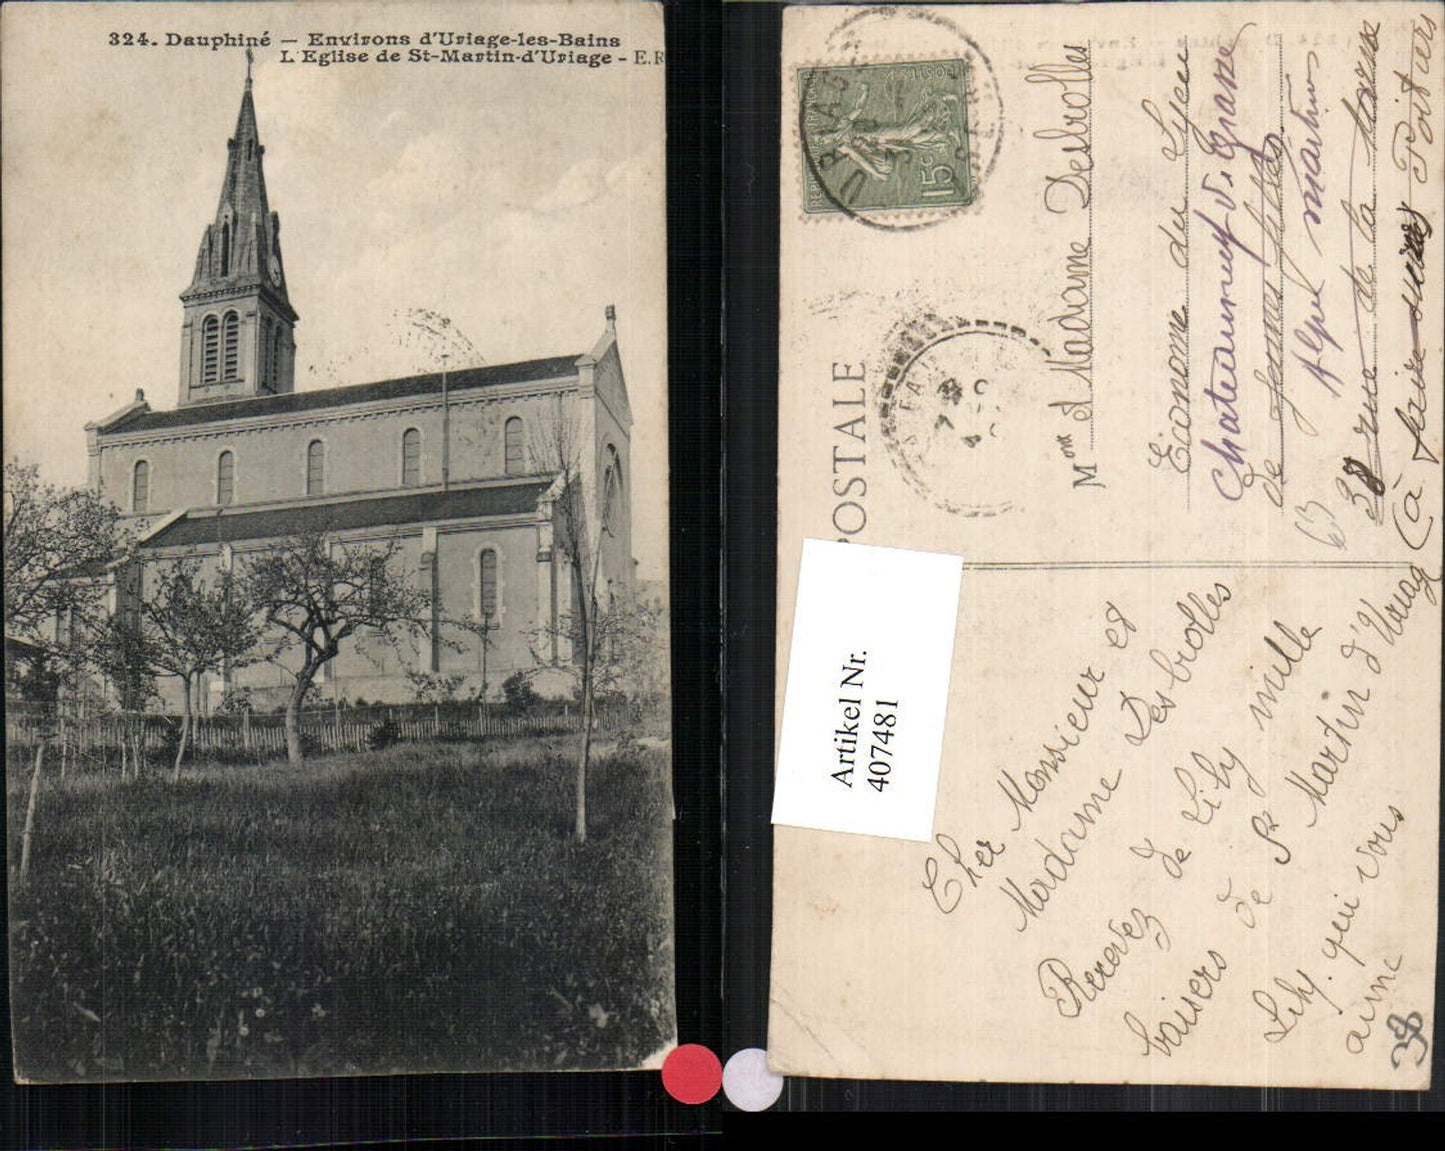 324. Dauphiné — Environs d'Uriage-les-Bains
L'Eglise de St-Martin-d'Uriage - E.R
POSTALE
15c
URIAGE
Artikel Nr.
407481
Mon et Madame Desbrolles
Econome du Lycée
Chateauneuf
de jeunes filles
Alpes maritimes
63
38 rue de la
(à faire suivre Poitiers
Cher Monsieur et
Madame Desbrolles
Recevez de Lily mille
baisers de St Martin d'Uriag
Lily qui vous
aime